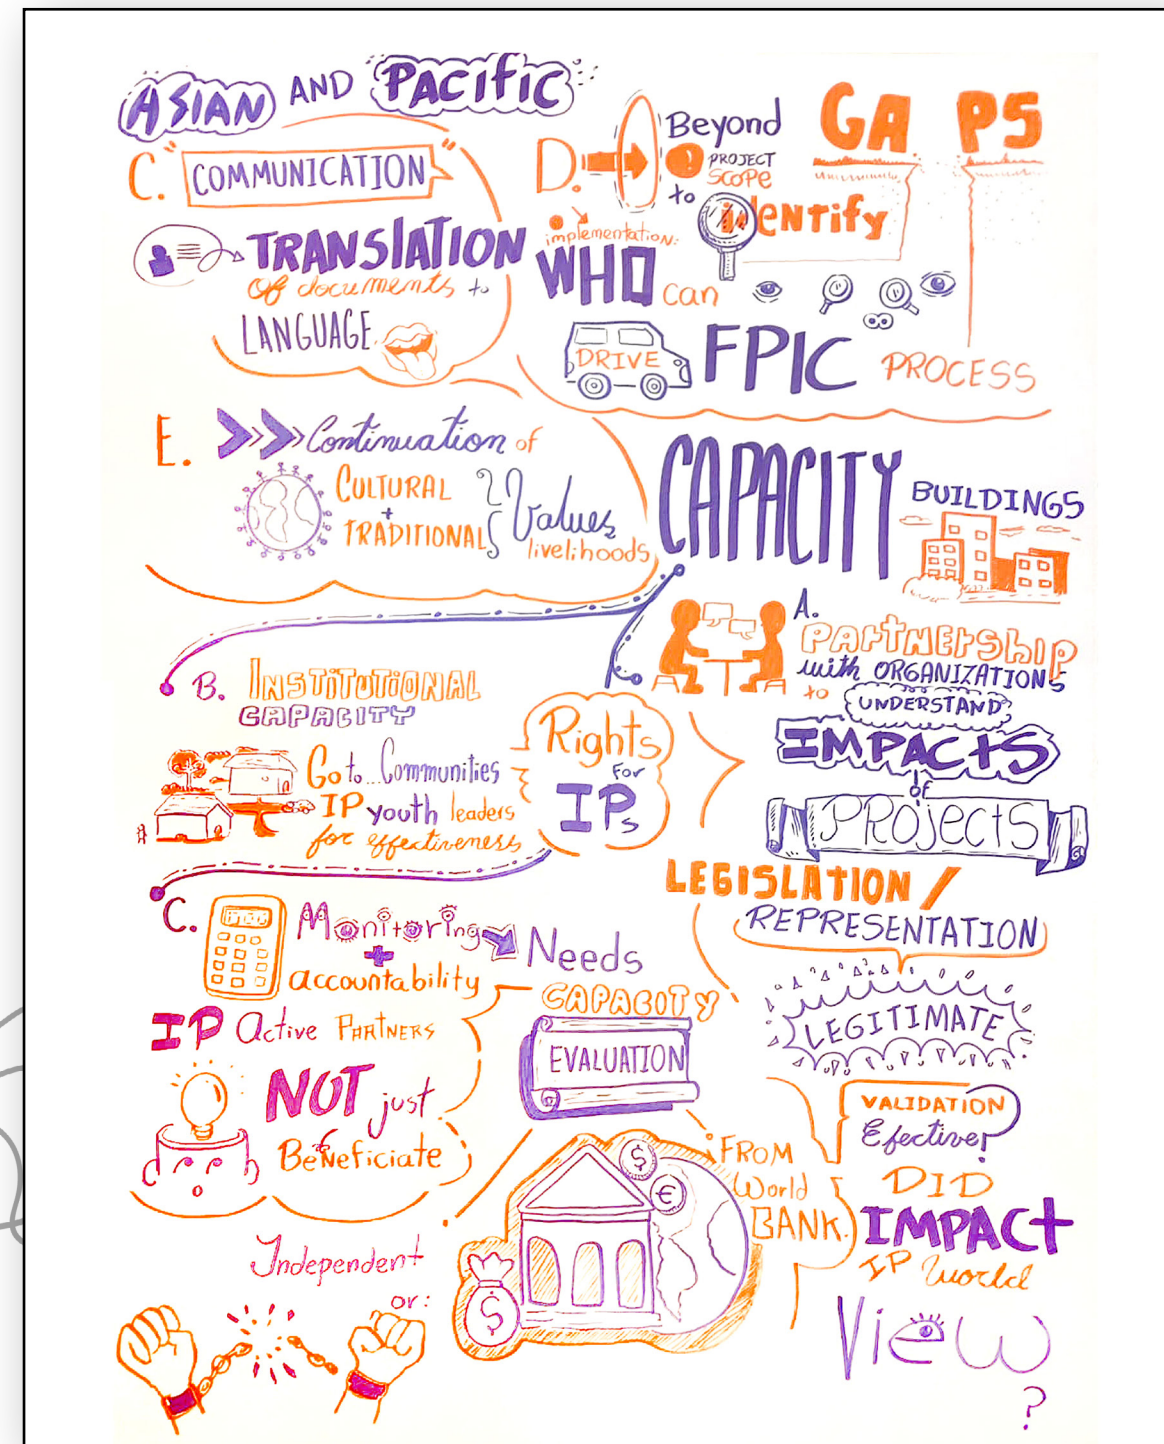 ASIAN AND PACIFIC
C. "COMMUNICATION"
TRANSLATION
of documents to
LANGUAGE
D. Beyond
PROJECT
SCOPE
to identify
GAPS
implementation:
WHO can
DRIVE FPIC PROCESS
E. Continuation of
CULTURAL
+
TRADITIONAL
Values
livelihoods
CAPACITY
BUILDINGS
A.
PARTNERSHIP
with ORGANIZATIONS
to UNDERSTAND
IMPACTS
of
PROJECTS
B. INSTITUTIONAL
CAPACITY
Go to... Communities
IP youth leaders
for effectiveness
Rights
FOR
IPs
C. Monitoring
+
accountability
Needs
CAPACITY
EVALUATION
IP Active PARTNERS
NOT just
Beneficiate
LEGISLATION /
REPRESENTATION
LEGITIMATE
VALIDATION
Efective!
FROM
World
BANK
DID
IMPACT
IP World
View
?
Independent
or:
$
€
$